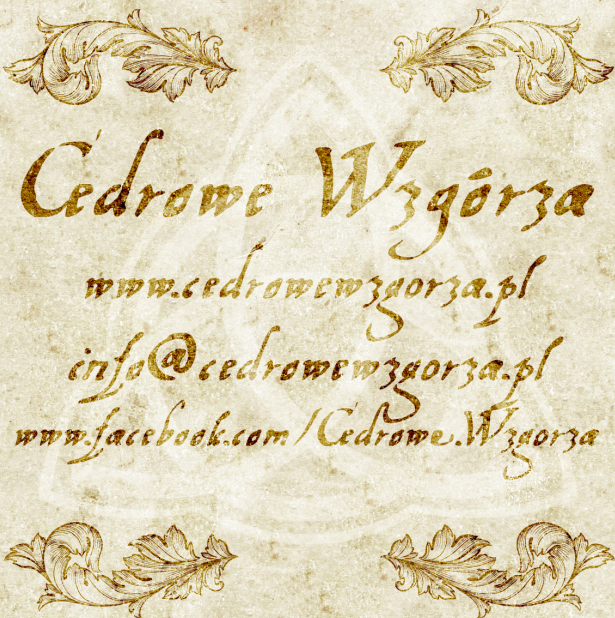 Cedrowe Wzgórza
www.cedrowewzgorza.pl
info@cedrowewzgorza.pl
www.facebook.com/Cedrowe.Wzgorza